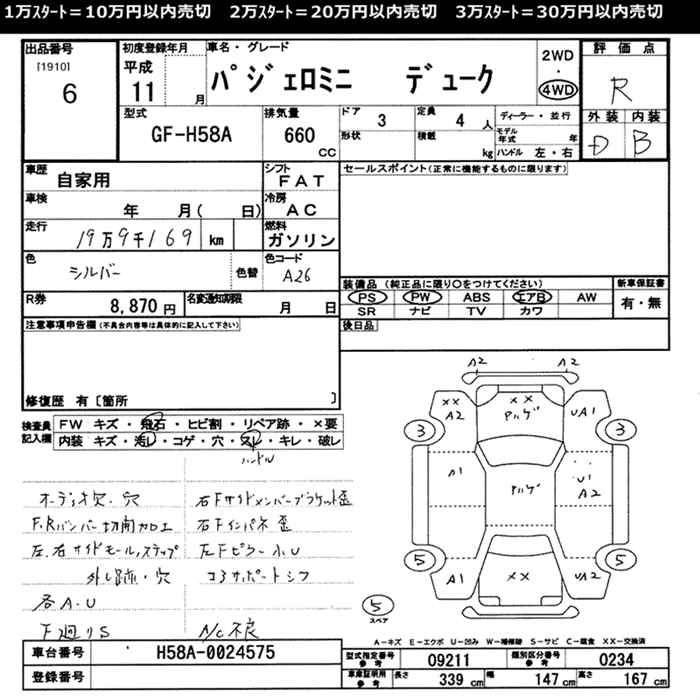 1万ｽﾀｰﾄ＝10万円以内売切　2万ｽﾀｰﾄ＝20万円以内売切　3万ｽﾀｰﾄ＝30万円以内売切
出品番号 初度登録年月 車名・グレード 2WD 評価点
[1910] 平成
6 11 月 パジェロミニ デューク ・ 4WD R
型式 排気量 ドア 3 定員 4 人 ディーラー・並行 外装 内装
GF-H58A 660 cc 形状 積載 kg モデル年式 年 D B
ハンドル 左・右
車歴 自家用 シフト FAT セールスポイント(正常に機能するものに限ります)
車検 年 月( 日) 冷房 AC
走行 19万9千169 km 燃料 ガソリン
色 シルバー 色替 色コード A26
装備品 (純正品に限り○をつけてください) 新車保証書
R券 8,870 円 名変通知期限 月 日 PS PW ABS エアB AW 有・無
SR ナビ TV カワ
注意事項申告欄(不具合内容等は具体的に記入して下さい) 後日品
修復歴 有〔箇所 〕
検査員記入欄 FW キズ・飛石・ヒビ割・リペア跡・×要
内装 キズ・汚レ・コゲ・穴・スレ・キレ・破レ
ハンドル
オーディオ欠・穴 右Fサイドメンバーブラケット歪
F.Rバンパー切開加工 右Fインパネ歪
左、右サイドモール,ステップ 左Fピラー小U
外し跡・穴 コアサポートシフ
各A・U
下廻りS A/C不良
A2 A2
XX A2 XX アルゲ UA1
3 3
A1 アルゲ U1 A2
5 5
A1 XX UA2
5
スペア
A－キズ E－エクボ U－凹み W－補修跡 S－サビ C－腐食 XX－交換済
車台番号 H58A-0024575 型式指定番号 参考 09211 類別区分番号 参考 0234
登録番号 車庫証明用 参考 長さ 339 cm 幅 147 cm 高さ 167 cm